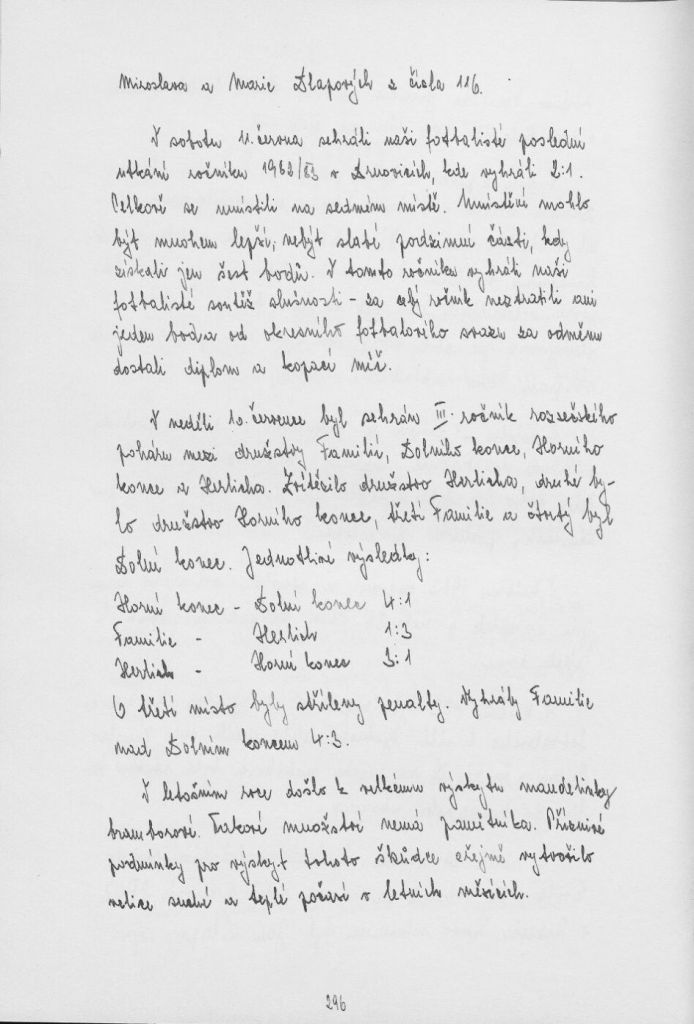 Miroslava a Marie Dlapových z čísla 116.
V sobotu 11. června sehráli naši fotbalisté poslední
utkání ročníku 1982/83 v Drnovicích, kde vyhráli 2:1.
Celkově se umístili na sedmém místě. Umístění mohlo
být mnohem lepší, nebýt slabé podzimní části, kdy
získali jen šest bodů. V tomto ročníku vyhráli naši
fotbalisté soutěž slušnosti - za celý ročník neztratili ani
jeden bod a od okresního fotbalového svazu za odměnu
dostali diplom a kopací míč.
V neděli 10. července byl sehrán III. ročník rozsečského
poháru mezi družstvy Familií, Dolního konce, Horního
konce a Herlicha. Zvítězilo družstvo Herlicha, druhé by-
lo družstvo Horního konce, třetí Familie a čtvrtý byl
Dolní konec. Jednotlivé výsledky:
Horní konec - Dolní konec 4:1
Familie - Herlich 1:3
Herlich - Horní konec 3:1
O třetí místo byly stříleny penalty. Vyhrály Familie
nad Dolním koncem 4:3.
V letošním roce došlo k velkému výskytu mandelinky
bramborové. Takové množství nemá pamětníka. Příznivé
podmínky pro výskyt tohoto škůdce zřejmě vytvořilo
velice suché a teplé počasí v letních měsících.
296